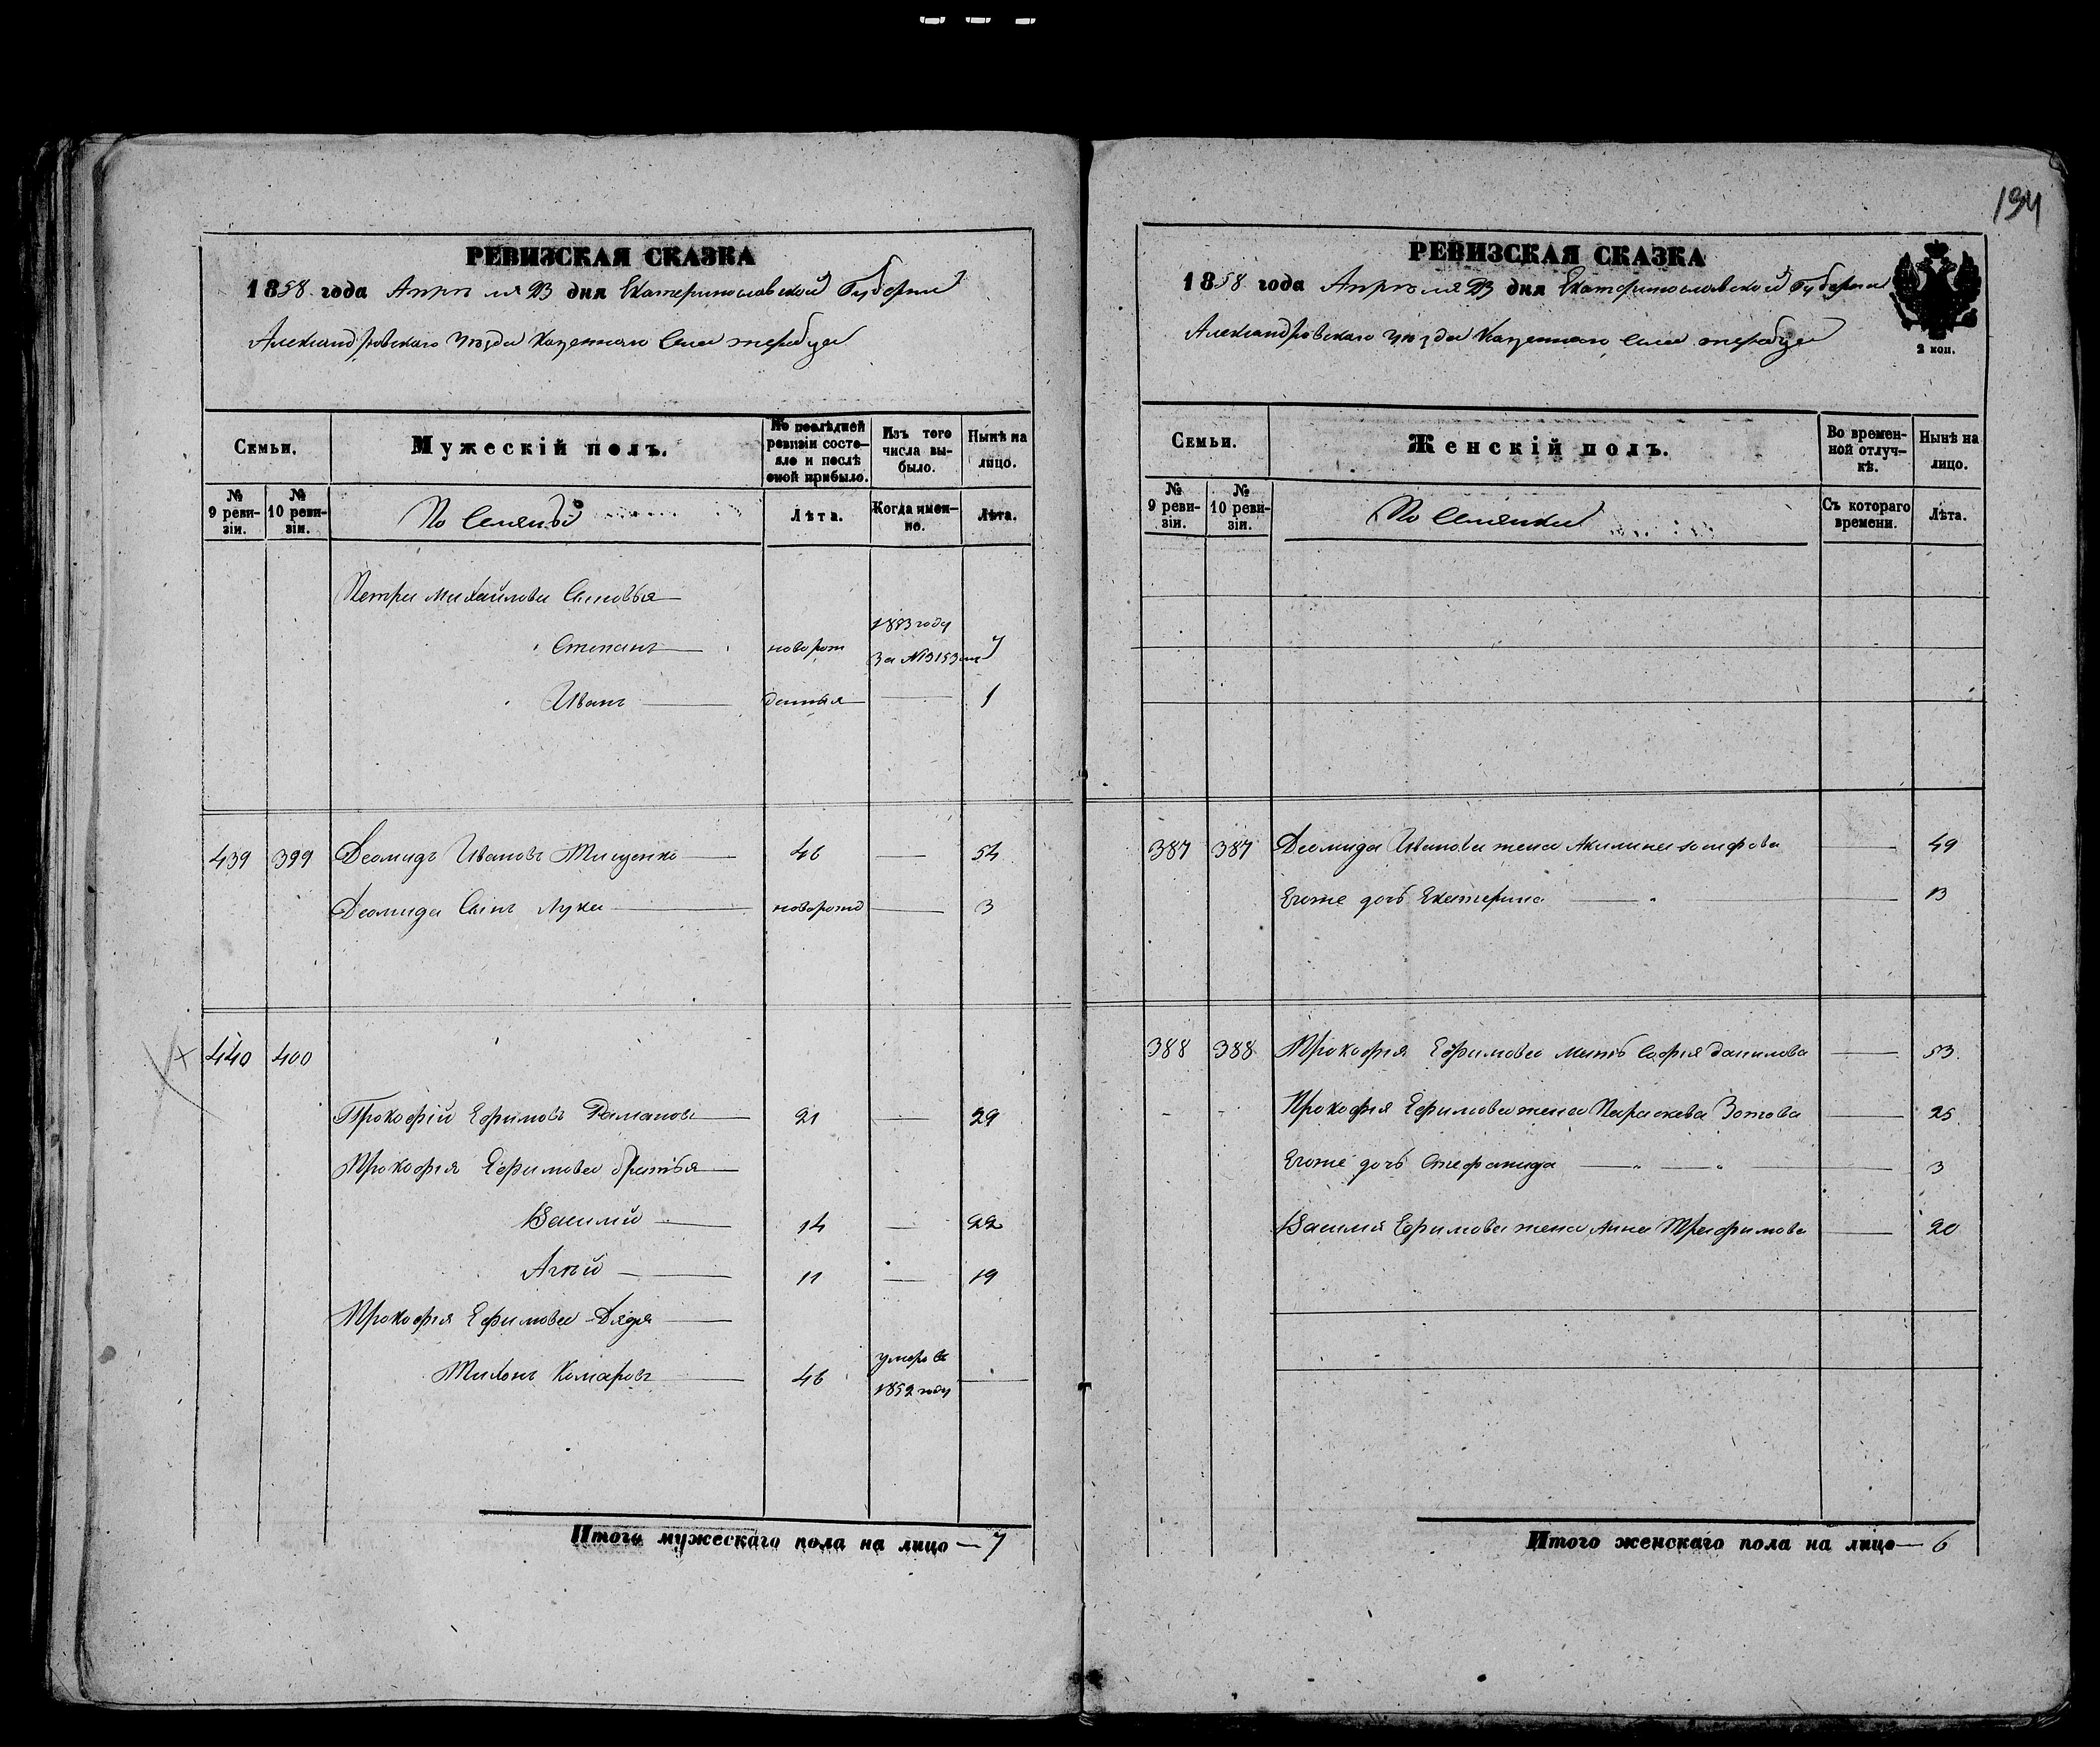 194
РЕВИЗСКАЯ СКАЗКА
1858 года Апреля 23 дня Екатеринославской Губернии
Александровского Уезда Казенного Села
Семьи.
Мужескій полъ.
По послѣдней ревизіи состояло и послѣ оной прибыло.
Изъ того числа выбыло.
Нынѣ на лицо.
№ 9 ревизіи.
№ 10 ревизіи.
Лѣта.
Когда именно.
Лѣта.
Петра Михайлова Сыновья
Степанъ новорож 1853 году 7
За №
Иванъ денныя 1
439 399 Деомидъ Ивановъ Тищенко 46 54
Деомида Сынъ Лука новорожд 3
440 400
Прокофій Ефимовъ 21 29
Прокофія Ефимова братья
Василий 14 22
Агѣй 11 19
Прокофія Ефимова Дядя
Тихонъ Комаровъ 46 умеръ въ
1852 году
Итого мужескаго пола на лицо — 7
РЕВИЗСКАЯ СКАЗКА
1858 года Апреля 23 дня Екатеринославской Губернии
Александровского Уезда Казенного Села
2 коп.
Семьи.
Женскій полъ.
Во временной отлучкѣ.
Нынѣ на лицо.
№ 9 ревизіи.
№ 10 ревизіи.
Съ котораго времени.
Лѣта.
387 387 Деомида Иванова жена Акилина 49
Егоже дочь Екатерина 13
388 388 Прокофія Ефимова мать Софія Данилова 53
Прокофія Ефимова жена Параскева Зотова 25
Егоже дочь Стефанида 3
Василія Ефимова жена Анна Трафимова 20
Итого женскаго пола на лицо — 6